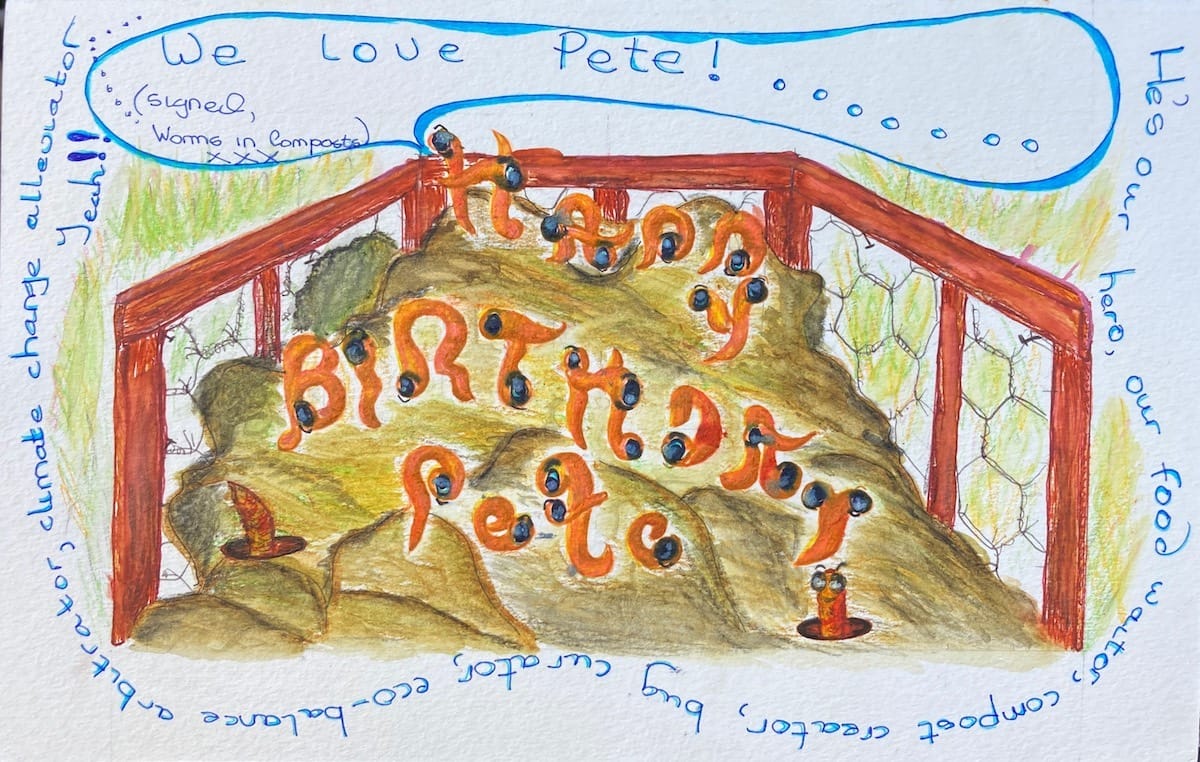 We Love Pete!
(signed,
Worms in Composts)
xxx
HAPPY
BIRTHDAY
Pete
He's our hero, our food waitor, compost creator, bug curator, eco-balance arbitrator, climate change alleviator
Yeah!!